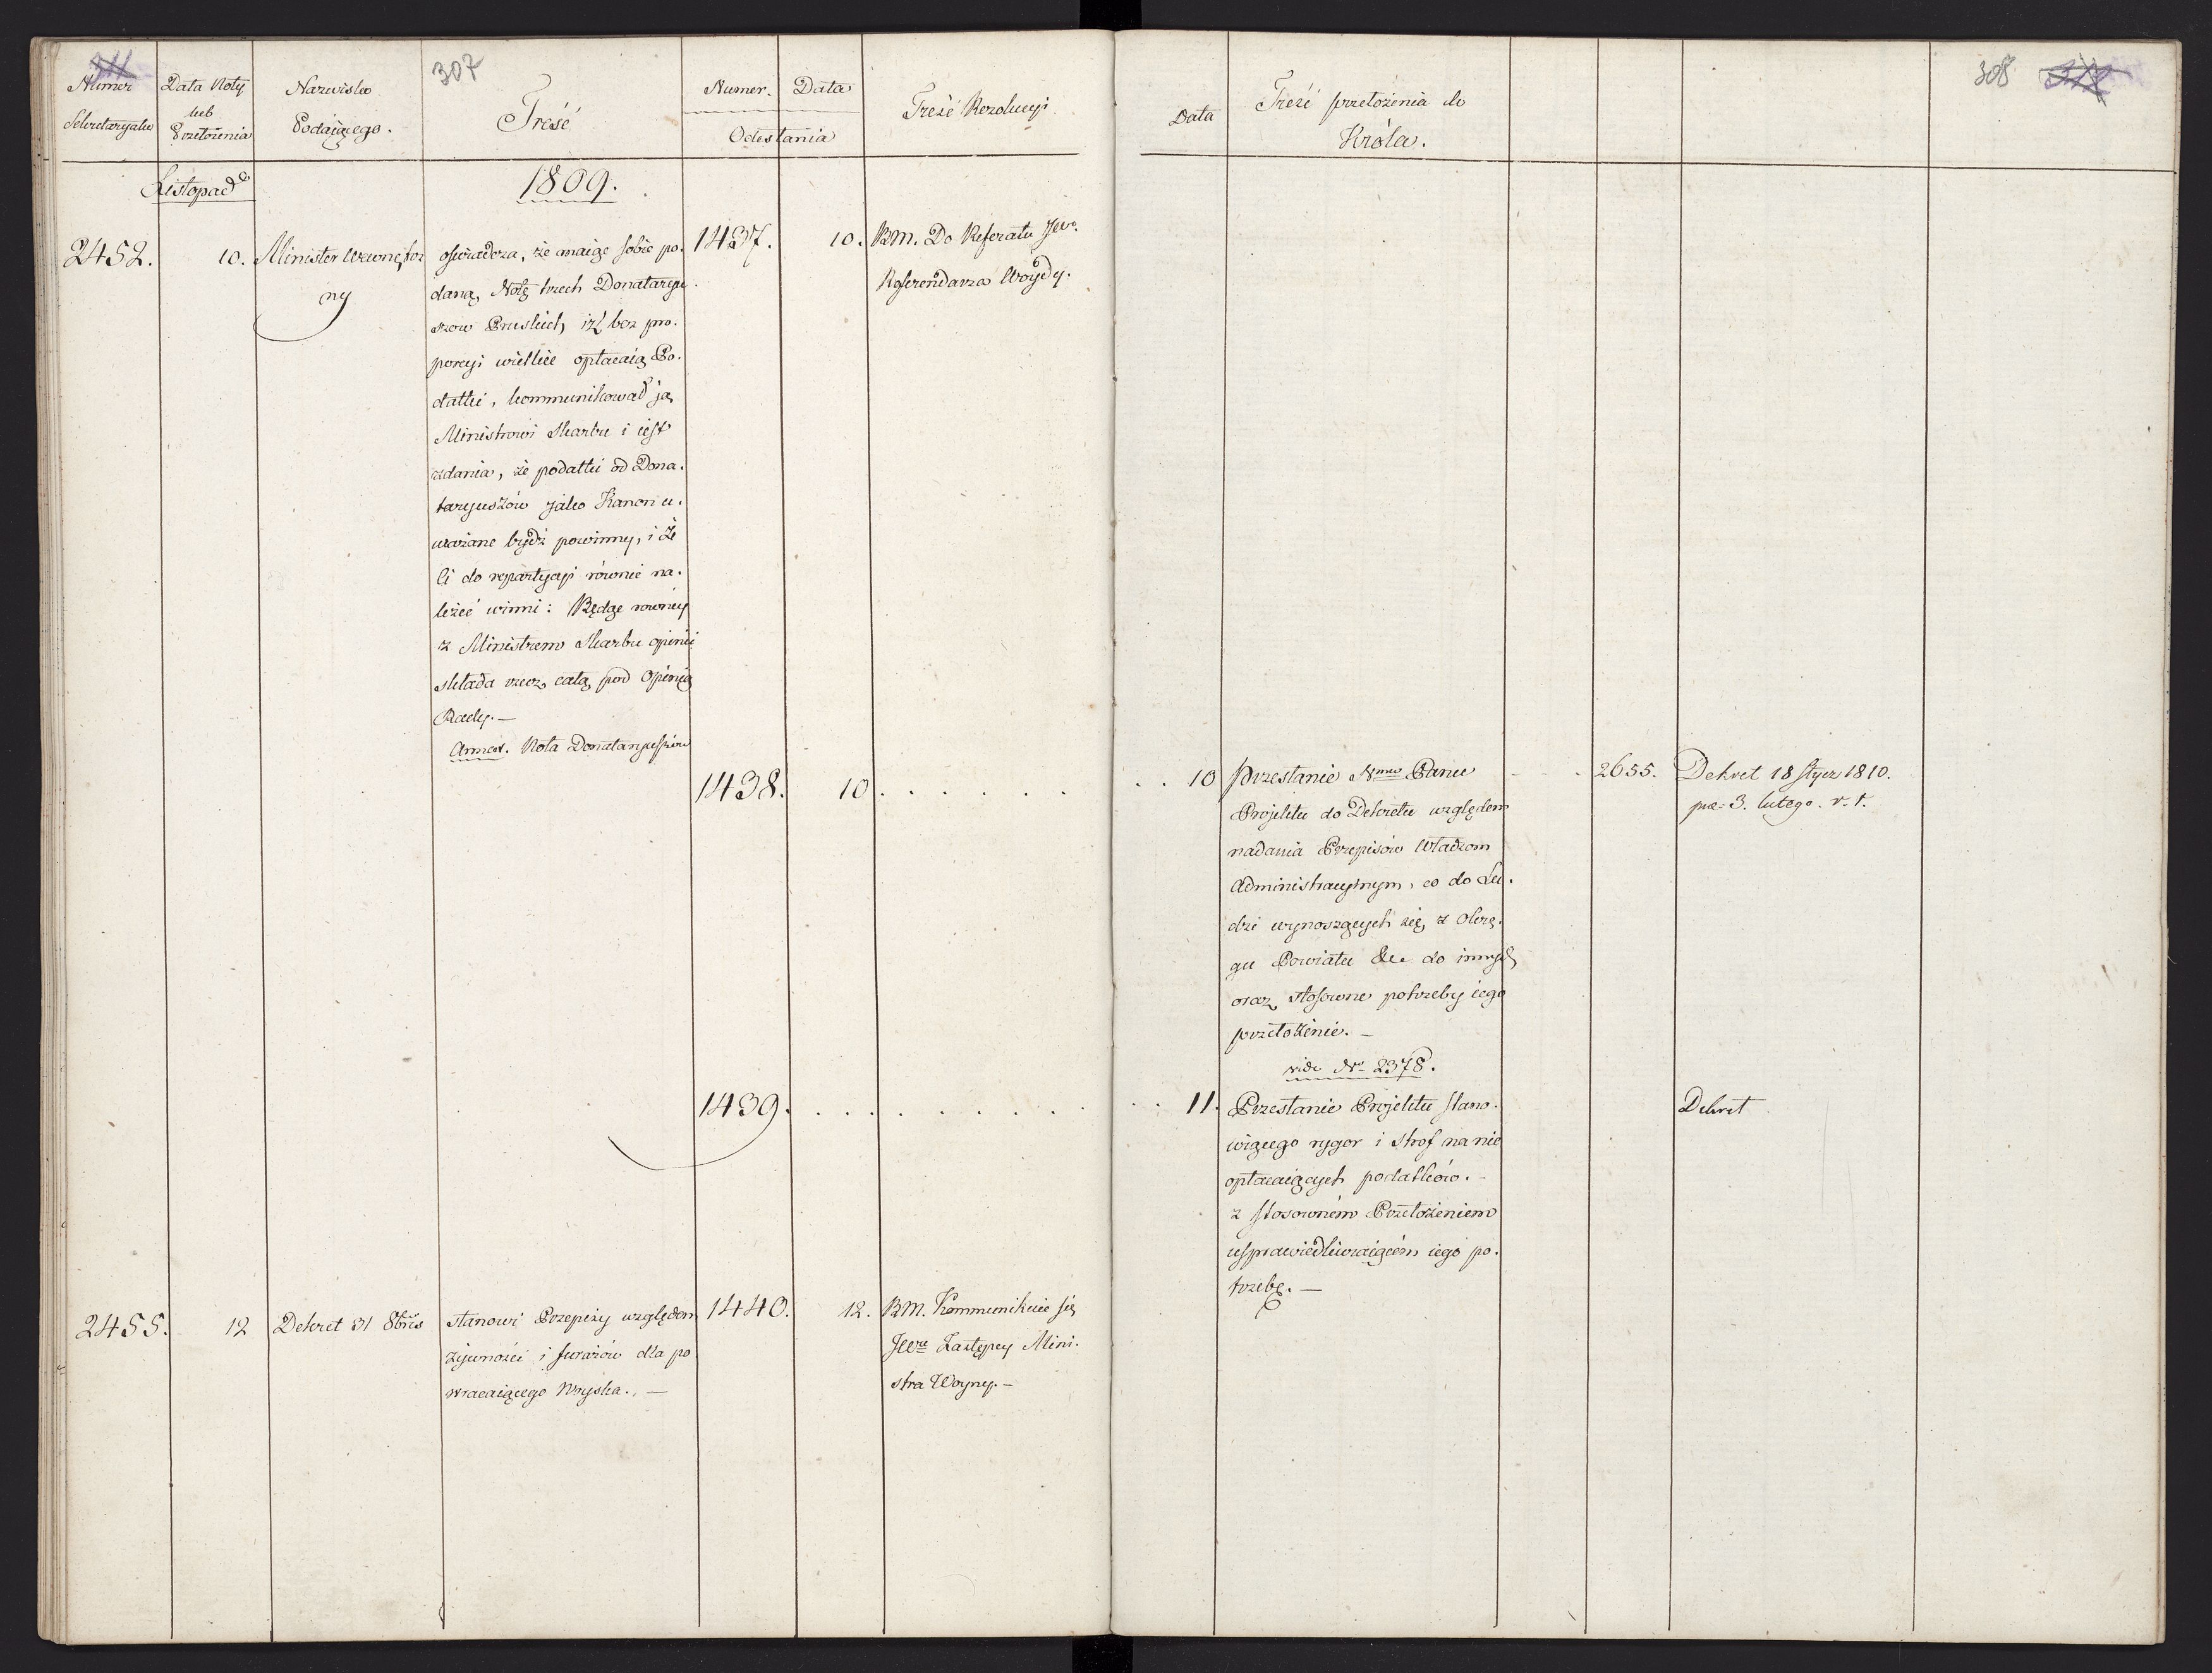 307
Numer
Sekretaryatu
Data Noty
lub
Przełożenia
Nazwisko
Podaiącego.
Treść
Numer.
Data
Odesłania
Treść Rezolucyi
Listopad
1809.
2452.
10.
Minister Wewnętrz
ny
oświadcza, że maiąc sobie po-
daną Notę trzech Donataryu
szow Pruskich, iż bez pro-
porcyi wielkie opłacaią Po-
datki, kommunikował ją
Ministrowi Skarbu i iest
zdania, że podatki od Dona-
taryuszów jako Kanon u-
ważane bydź powinny, i że
Ci do repartycyi równie na-
leżeć winni: Będąc rowney
z Ministrem Skarbu opinii
składa rzecz całą pod Opinię
Rady. —
Annex. Nota Donataryuszów
1437.
10.
BM. Do Referatu JWo.
Referendarza Woydy.
1438.
10 . . . . . .
1439. . . . . . . . .
2455.
12
Dekret 31 8bris
stanowi Przepisy względem
żywności i furażów dla po
wracaiącego Woyska. —
1440.
12.
BM. Kommunikuie się
JWne Zastępcy Mini-
stra Woyny. —
308
Data
Treść przełożenia do
Króla.
. . 10
Przesłanie Nmu Panu
Projektu do Dekretu względem
nadania Przepisów Władzom
Administracyinym, co do Lu-
dzi wynoszących się z Okrę-
gu Powiatu &c do innych
oraz stosowne potrzeby iego
przełożenie. —
vide No 2378.
2655.
Dekret 18 Stycz 1810.
pre: 3. lutego. r. t.
. . 11.
Przesłanie Projektu stano-
wiącego rygor i strof na nie
opłacaiących podatków. -
z stosowném Przełożeniem
usprawiedliwiaiącém iego po-
trzebę. —
Dekret